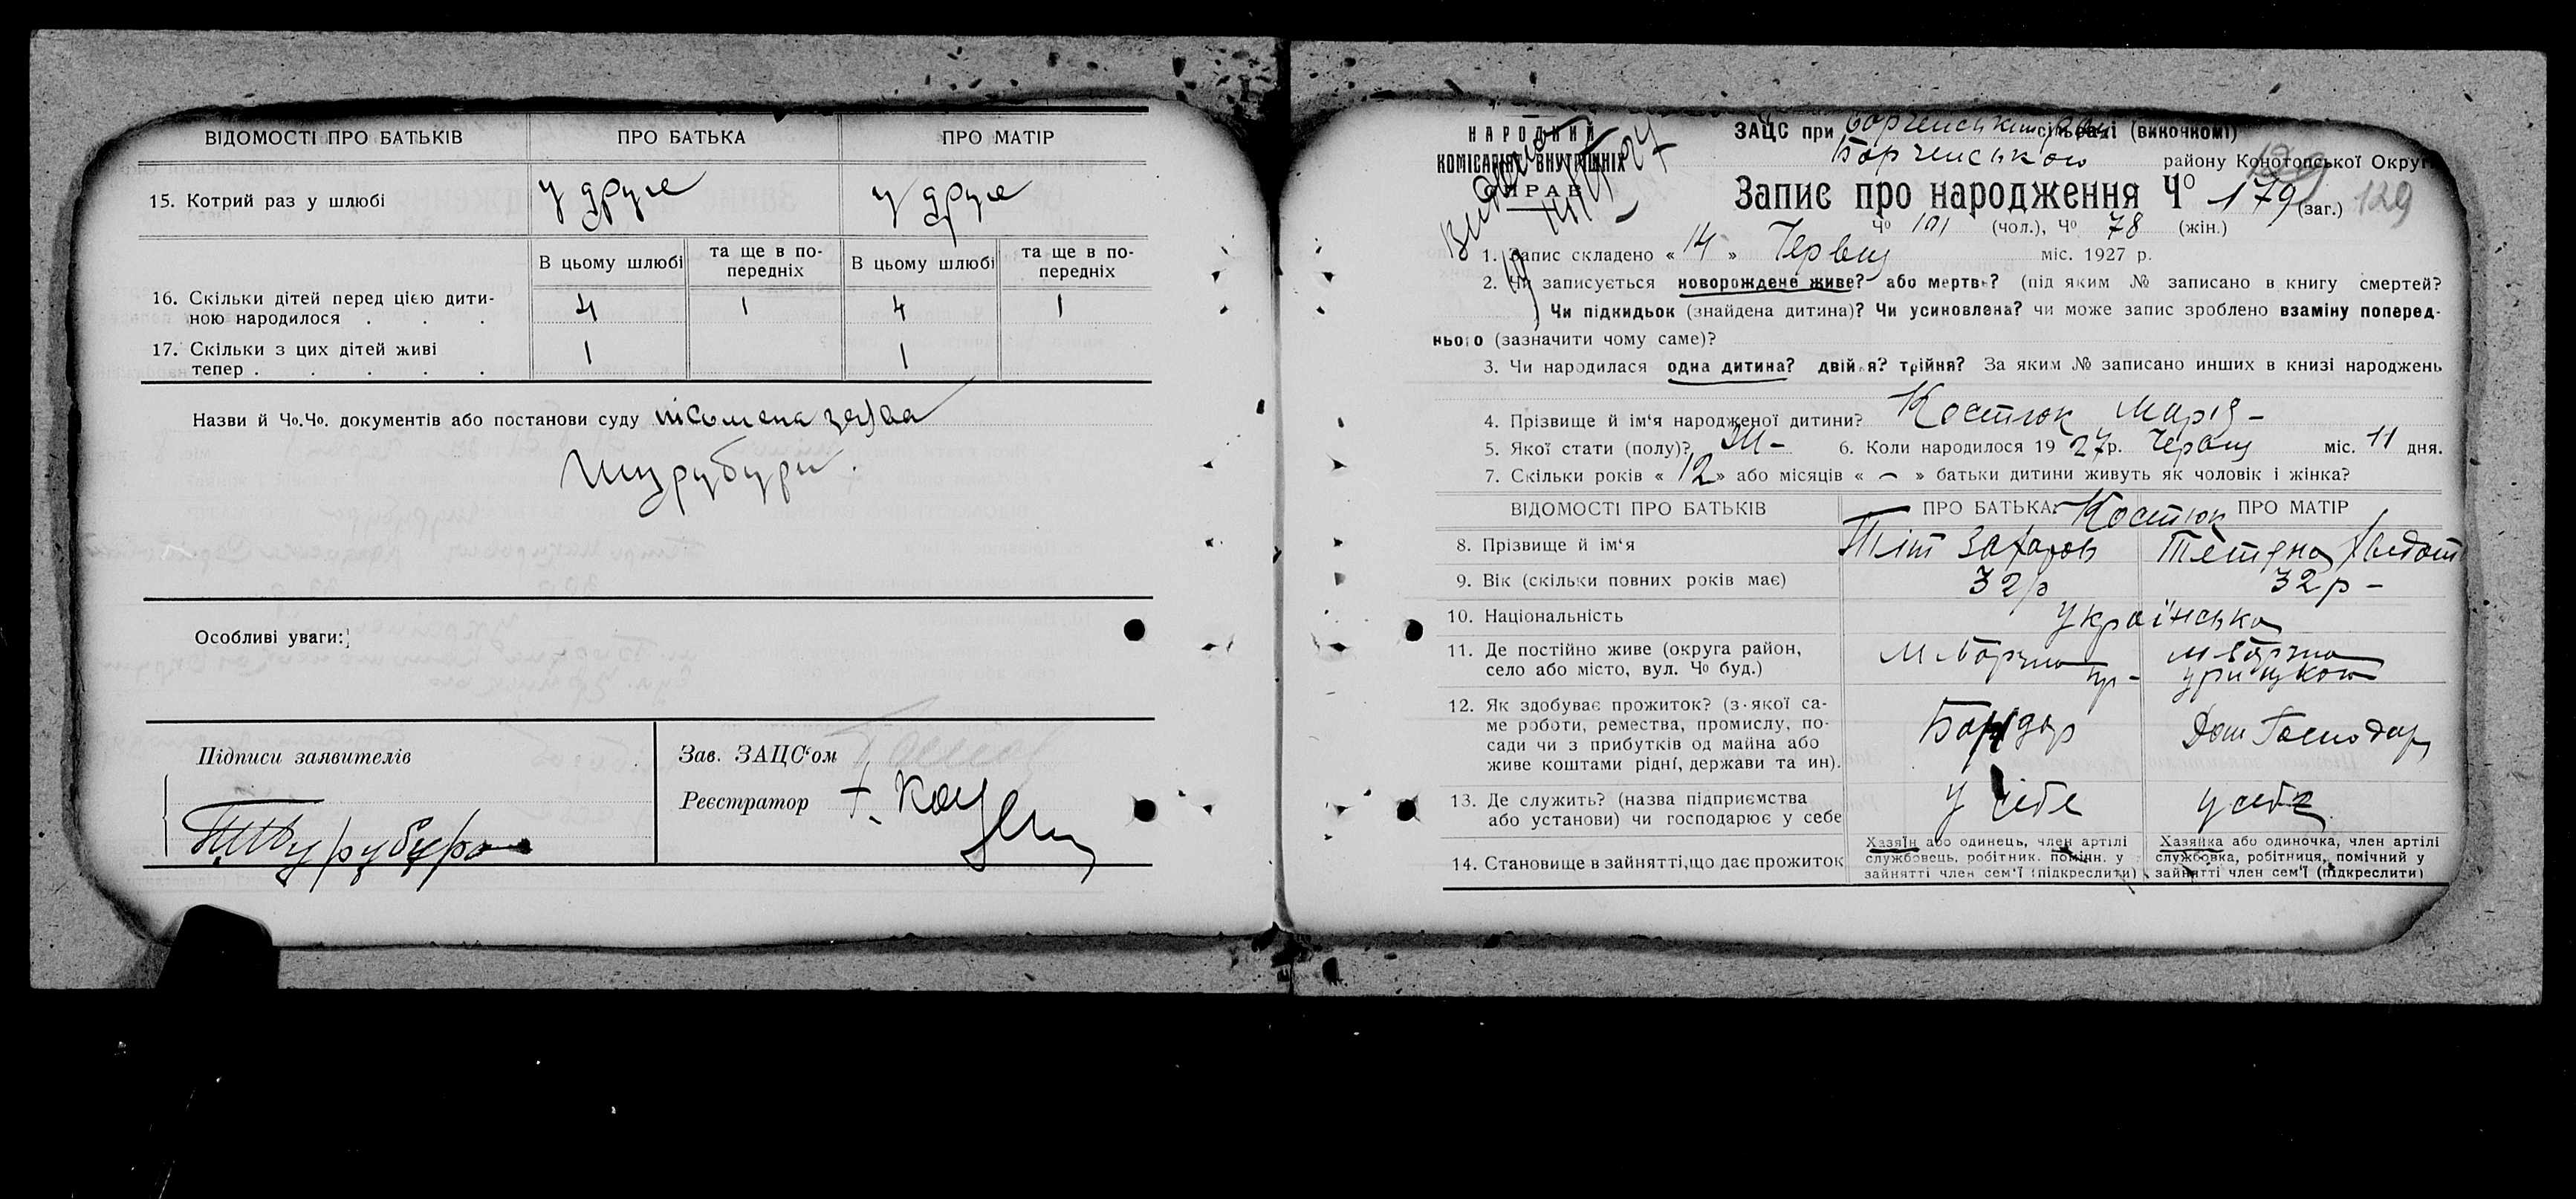 ВІДОМОСТІ ПРО БАТЬКІВ ПРО БАТЬКА ПРО МАТІР
15. Котрий раз у шлюбі у друге у друге
В цьому шлюбі та ще в по-передніх В цьому шлюбі та ще в по-передніх
16. Скільки дітей перед цією дити-
ною народилося . . . 4 1 4 1
17. Скільки з цих дітей живі
тепер . . . . . 1 1
Назви й Чо.Чо. документів або постанови суду письмена заява
Шурубури.
Особливі уваги:
Підписи заявителів
Шурубура
Зав. ЗАЦС‘ом
Реєстратор
НАРОДНИЙ
КОМІСАРІЯТ ВНУТРІШНІХ
СПРАВ
ЗАЦС при Борченській сільраді (викочкомі)
Борченського району Конотопської Округи
Запис про народження Чо 179 (заг.) 129
Чо 101 (чол.), Чо 78 (жін.)
1. Запис складено « 14 » Червц міс. 1927 р.
2. Чи записується новорождене живе? або мертве? (під яким № записано в книгу смертей?
Чи підкидьок (знайдена дитина)? Чи усиновлена? чи може запис зроблено взаміну поперед-
нього (зазначити чому саме)?
3. Чи народилася одна дитина? двійня? трійня? За яким № записано инших в книзі народжень
4. Прізвище й ім‘я народженої дитини? Костюк Марія -
5. Якої стати (полу)? Ж - 6. Коли народилося 19 27 р. Червц міс. 11 дня.
7. Скільки років « 12 » або місяців « – » батьки дитини живуть як чоловік і жінка?
ВІДОМОСТІ ПРО БАТЬКІВ ПРО БАТЬКА: Костюк ПРО МАТІР
8. Прізвище й ім‘я Тіт Захаров Тетяна Федот
9. Вік (скільки повних років має) 32 р 32 р -
10. Національність Українська
11. Де постійно живе (округа район,
село або місто, вул. Чо буд.) М Борзна М Борзна
12. Як здобуває прожиток? (з якої са-
ме роботи, ремества, промислу, по-
сади чи з прибутків од майна або
живе коштами рідні, держави та ин). Бондар Дом Господар
13. Де служить? (назва підприємства
або установи) чи господарює у себе у себе у себе
14. Становище в зайнятті, що дає прожиток
Хазяїн або одинець, член артілі
службовець, робітник. поміцн. у
зайнятті член сем‘ї (підкреслити)
Хазяйка або одиночка, член артілі
службовка, робітниця, помічний у
зайнятті член сем‘ї (підкреслити)